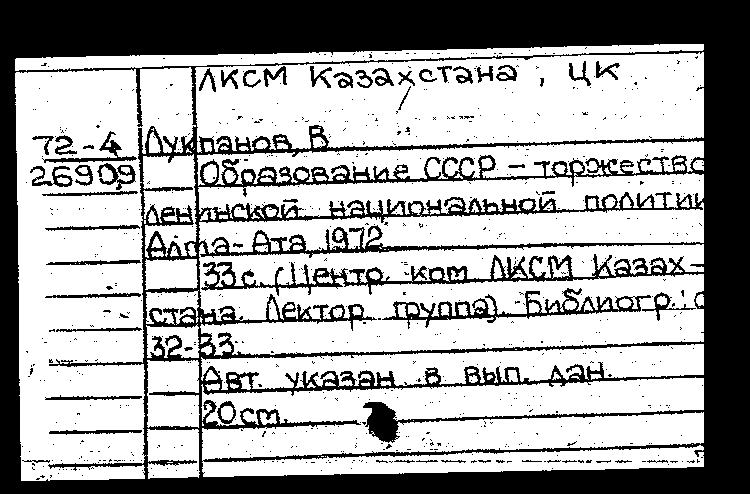 ЛКСМ Казахстана, ЦК
72-4 Лукпанов, В
26909 Образование СССР – торжество
ленинской национальной политики
Алма-Ата, 1972
33 с. (Центр. ком ЛКСМ Казах-
стана. Лектор группа). Библиогр.: с
32-33.
Авт. указан в вып. дан.
20 см.